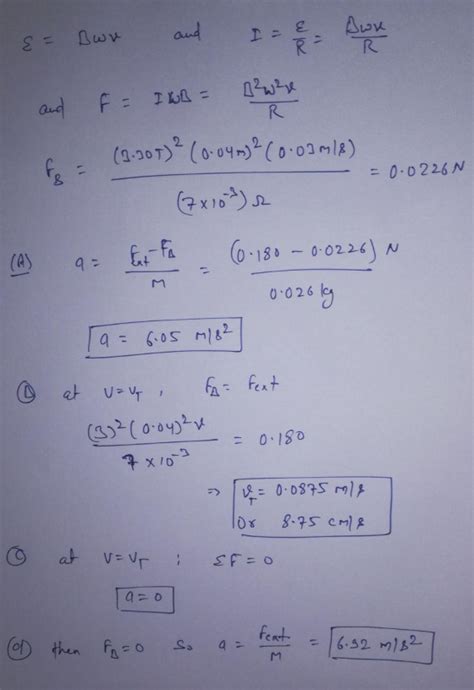 ε = Bwv and I = ε/R = Bwv/R
and F = IwB = B²w²v/R
F_B = (3.30T)² (0.04m)² (0.03m/s) / (7×10⁻³) Ω = 0.0226N
(A) a = F_ext - F_B / M = (0.180 - 0.0226) N / 0.026 kg
a = 6.05 m/s²
(B) at v = v_T , F_B = F_ext
(3)² (0.04)² v / 7 × 10⁻³ = 0.180
⇒ v_T = 0.0875 m/s
Or 8.75 cm/s
(C) at v = v_T ; ΣF = 0
a = 0
(d) then F_B = 0 So a = F_ext / M = 6.92 m/s²